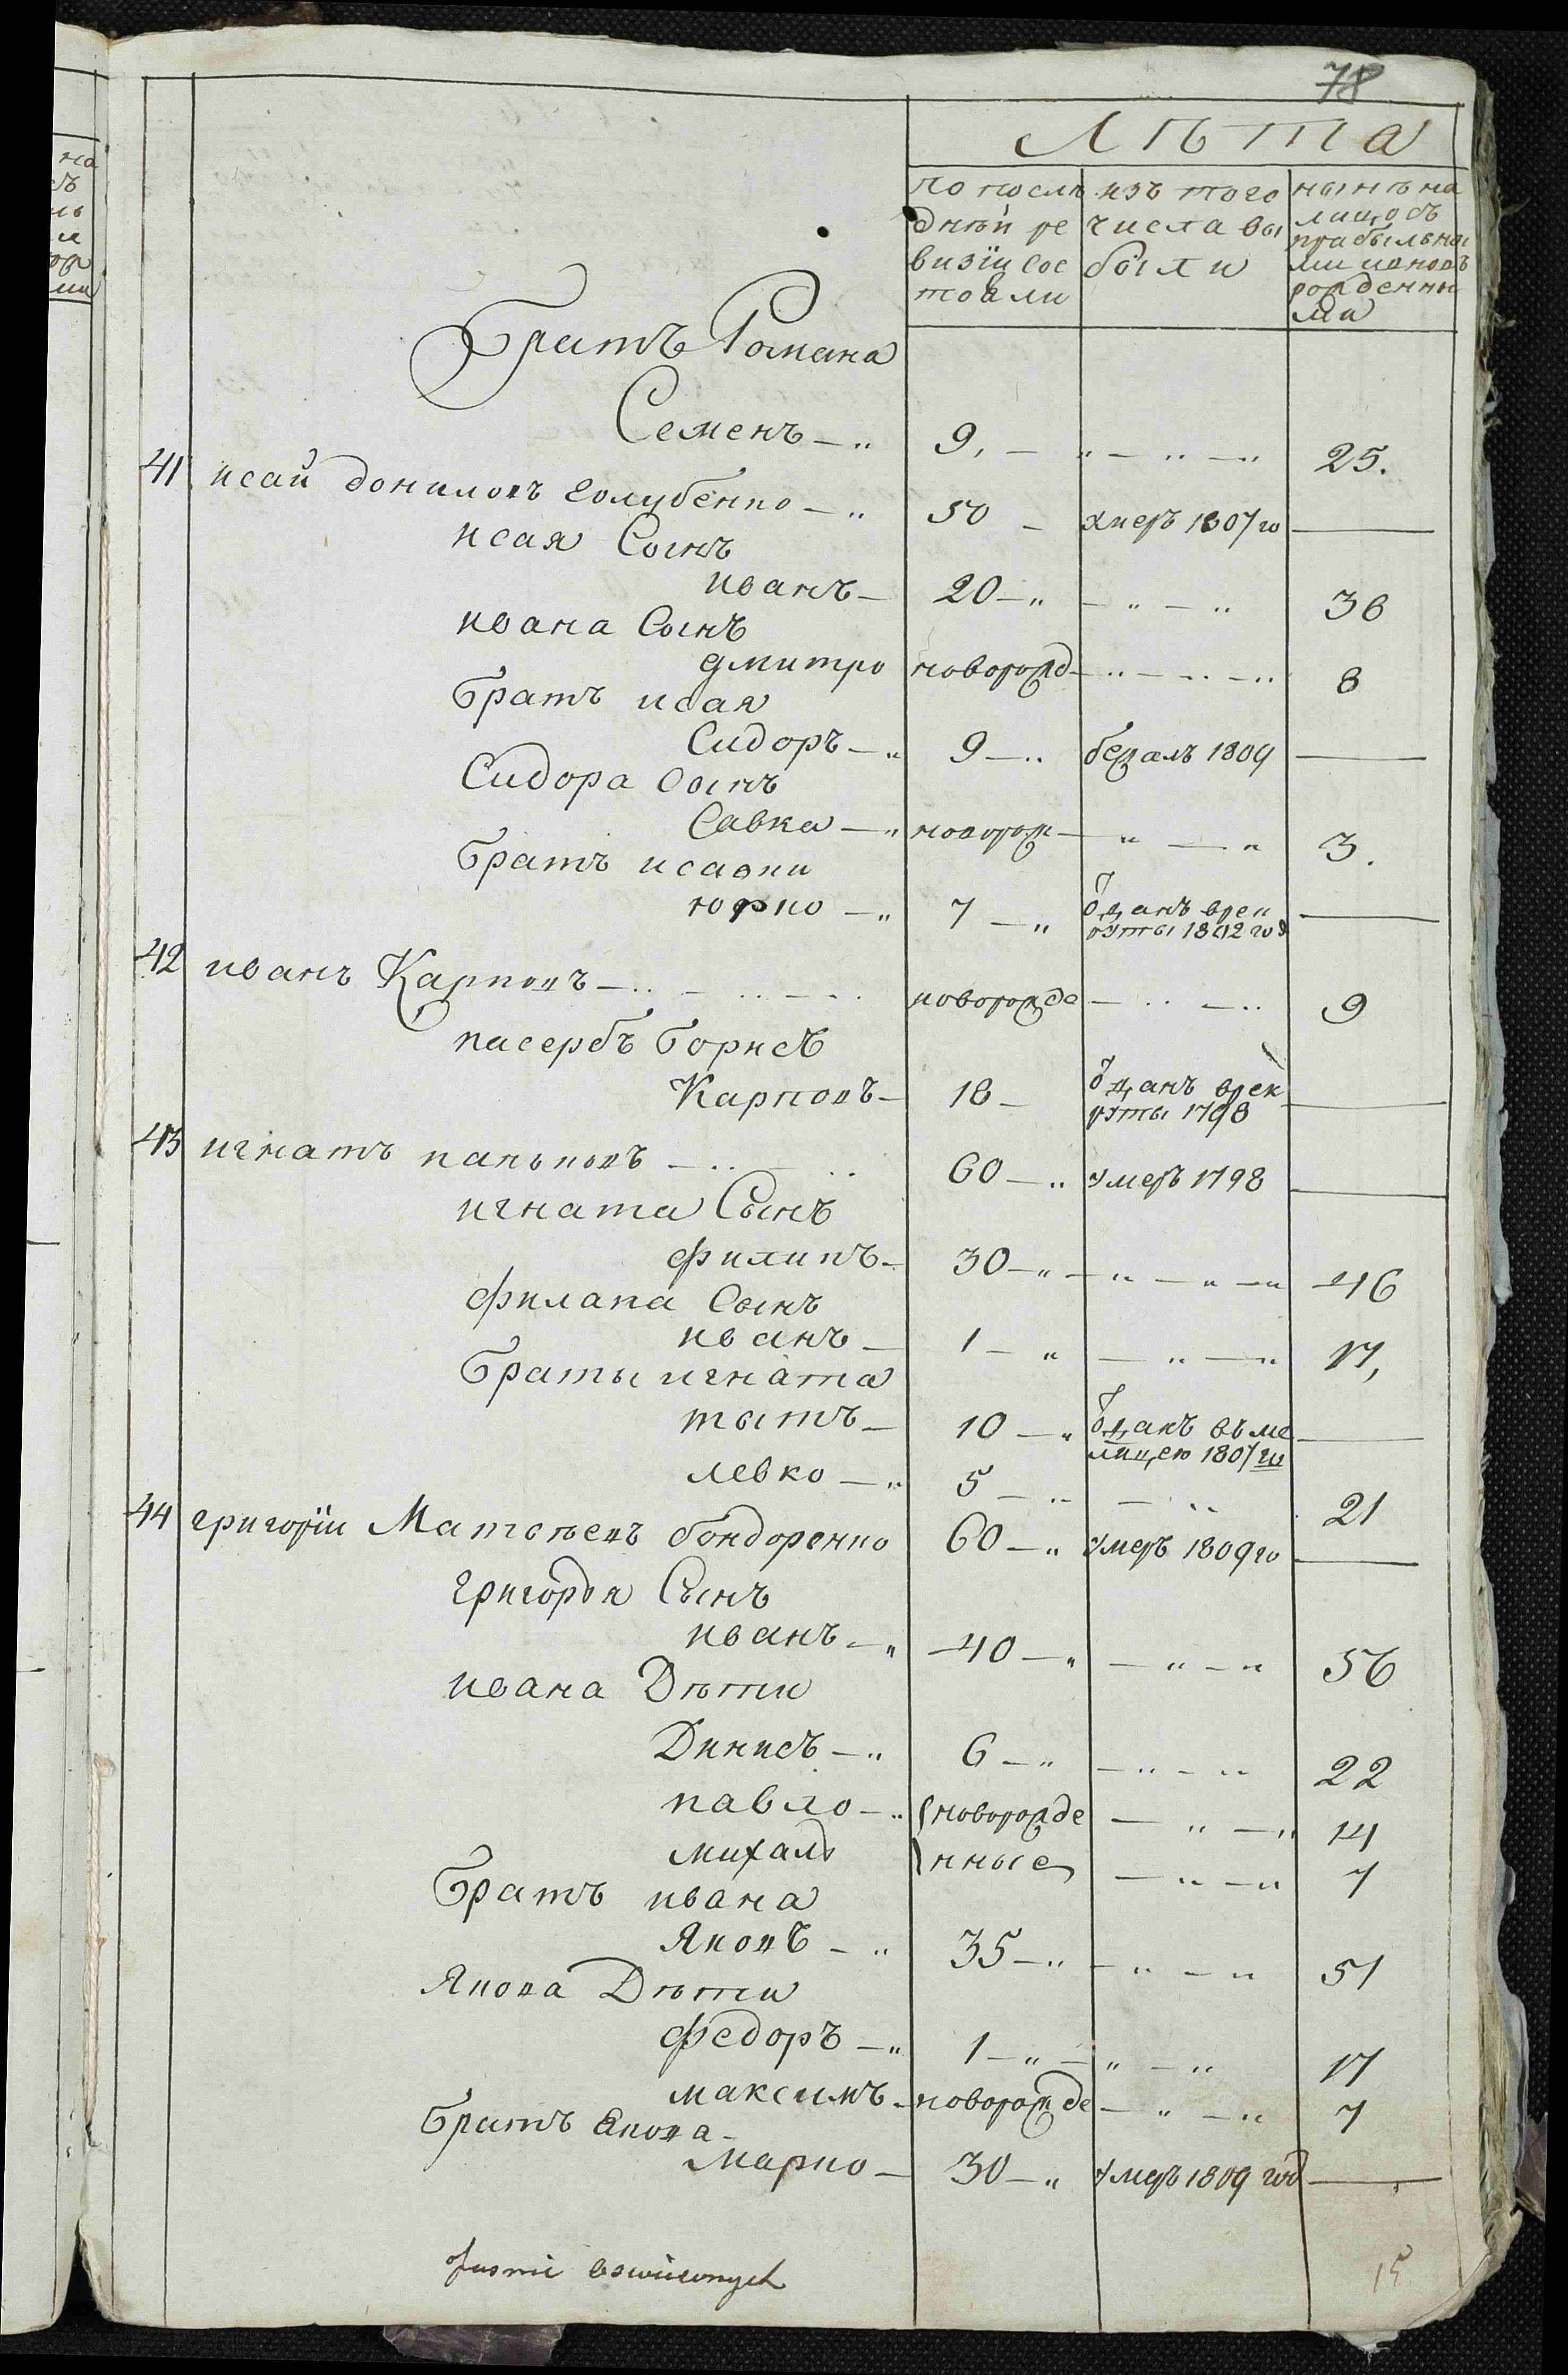 78
Лѣта
по послѣ изъ того нынѣ на
днѣй ре числа вы лицо съ
визіи сос были прабыльны
тояли ми ионовъ
рожденны
ма
Братъ Романа
Семенъ — „ 9, — „ — „ — „ 25.
41 исай дониловъ Голубенко — „ 50 — умеръ 1807 го —
исая Сынъ
иванъ — 20 — „ — „ — „ 36
ивана Сынъ
дмитро новорожд — „ — „ — „ 8
Братъ исая
Сидоръ — „ 9 — „ бежалъ 1809 —
Сидора Сынъ
Савка — „ новорож — „ — „ 3.
Братъ исаяки
юрко — „ 7 — „ ѿданъ врек
руты 1812 год —
42 иванъ Карповъ — „ — „ — „ новорожде — „ — „ 9
пасербъ Борисъ
Карповъ — 18 — ѿданъ врек
руты 1798 —
43 игнатъ — „ — „ 60 — „ умеръ 1798 —
игната Сынъ
филипъ — 30 — „ — „ — „ — „ 46
филапа Сынъ
иванъ — 1 — „ — „ — „ 17,
Браты игната
титъ — 10 — „ ѿданъ въ ми
лицею 1807 го —
левко — „ 5 — „ — „ 21
44 григорїи Матвѣевъ бондоренко 60 — „ умеръ 1809 го —
григорья Сынъ
иванъ — „ 40 — „ — „ — „ 56
ивана Дѣти
Динисъ — „ 6 — „ — „ — „ 22
павло — „ новорожде — „ — „ 14
михалъ нные — „ — „ 7
Братъ ивана
Яковъ — „ 35 — „ — „ — „ 51
Якова Дѣти
федоръ — „ 1 — „ — „ — „ 17
максимъ — новорожде — „ — „ 7
Братъ Якова —
марко — 30 — „ умеръ 1809 год —
15